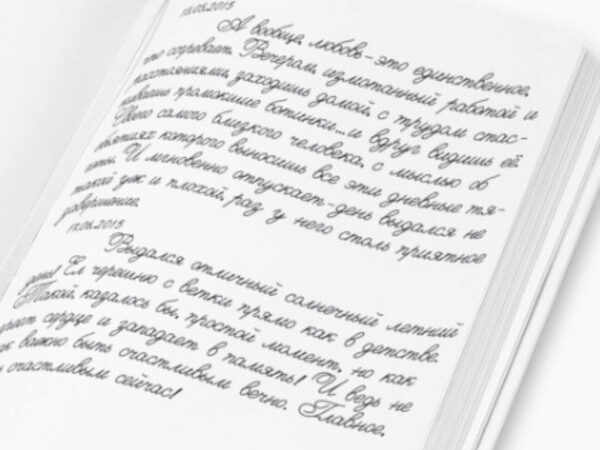 15.05.2015
А вообще, любовь-это единственное,
что согревает. Вечерам, измотанный работой и
расстояниями, заходишь домой, с трудом стас-
киваешь промокшие ботинки...и вдруг видишь её.
Своего самого близкого человека, с мыслью об
объятиях которого выносишь все эти дневные тя-
готы. И мгновенно отпускает-день выдался не
такой уж и плохой, раз у него столь приятное
завершение.
17.06.2015
Выдался отличный солнечный летний
день! Ел черешню с ветки прямо как в детстве.
Такой, казалось бы, простой момент, но как
сердце и западает в память! И ведь не
важно быть счастливым вечно. Главное,
счастливым сейчас!